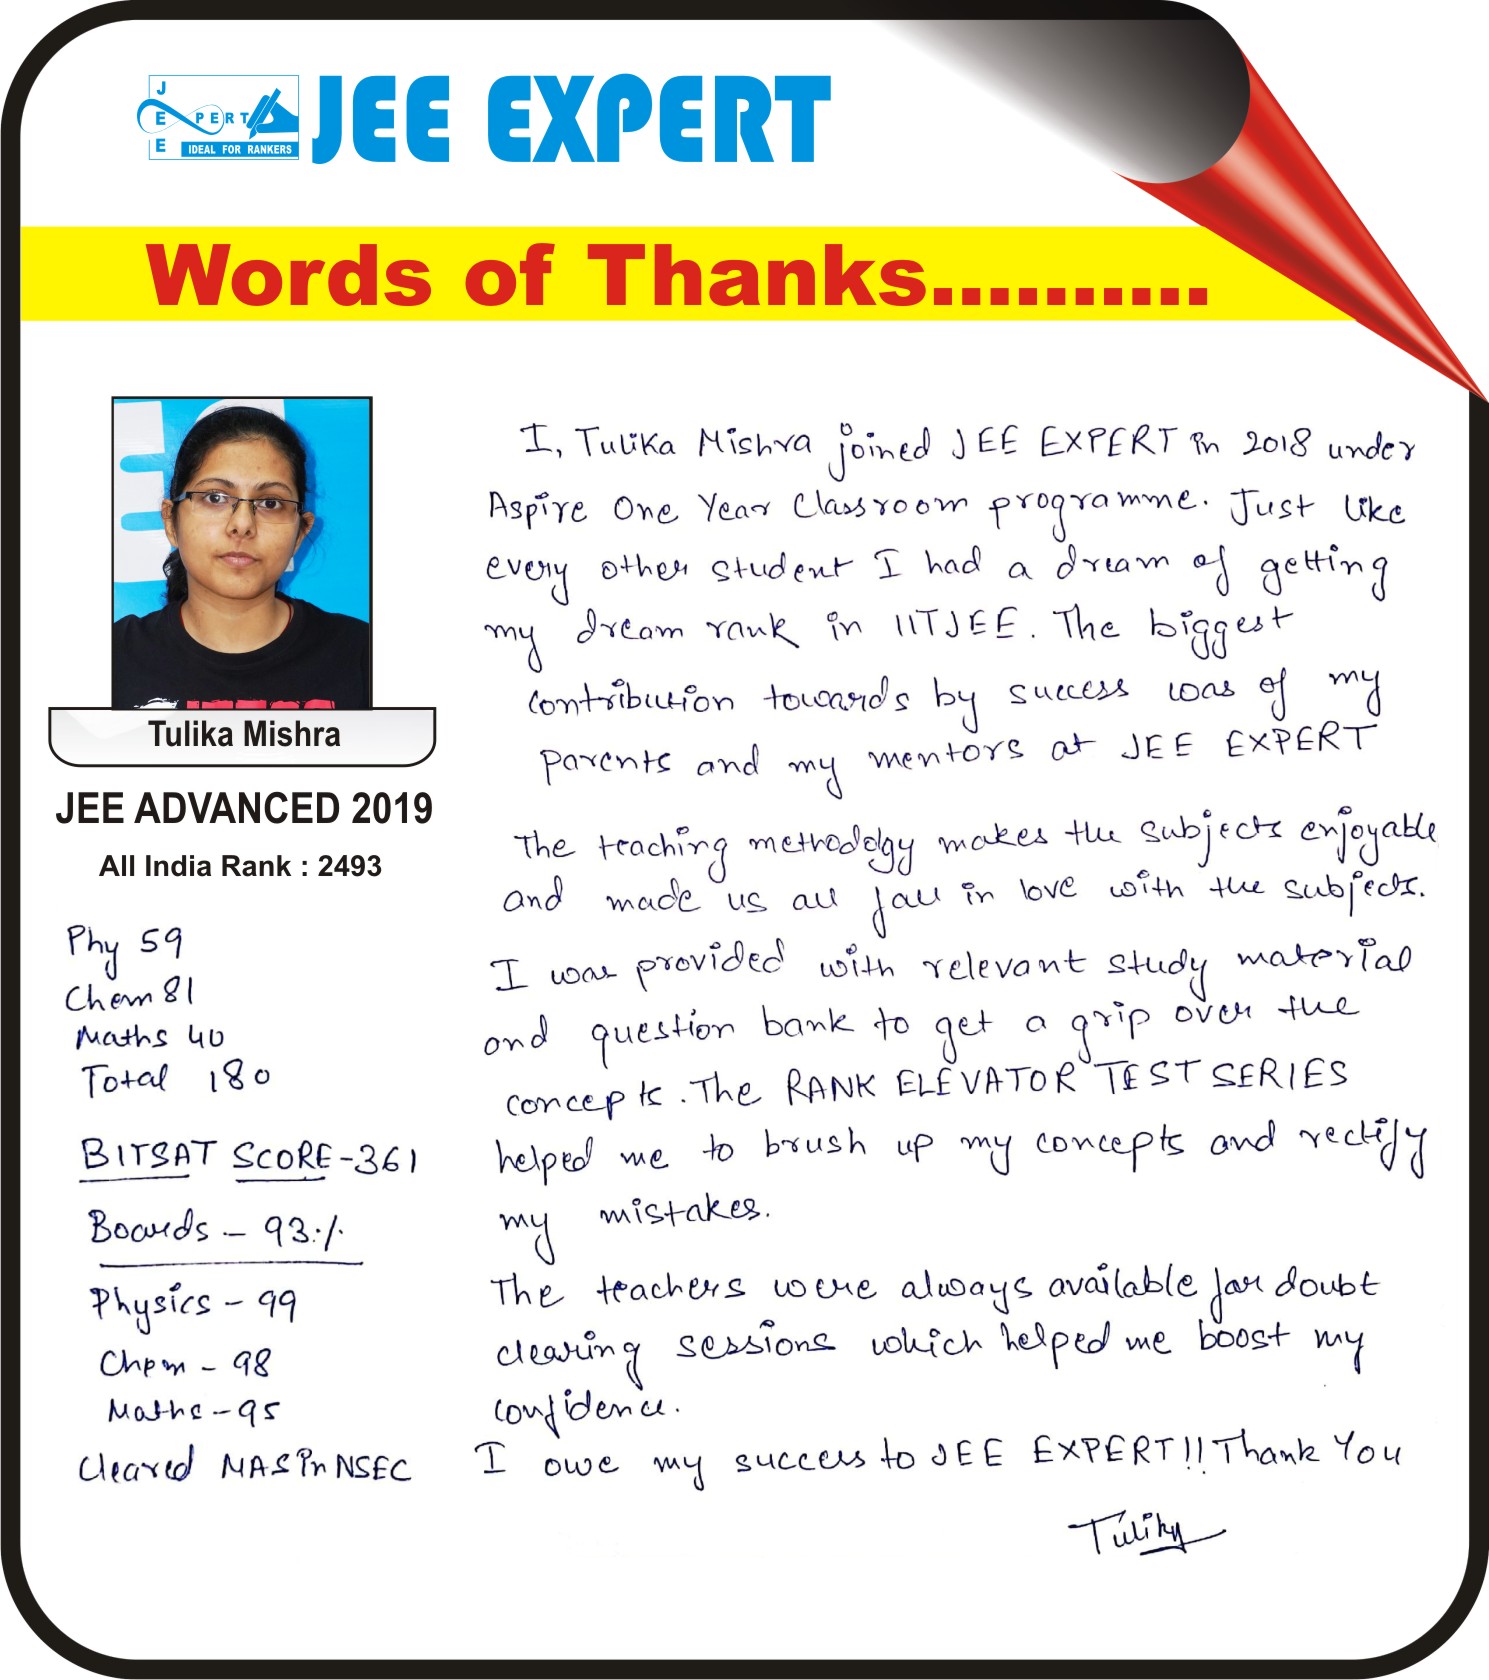 JEE
EXPERT
IDEAL FOR RANKERS
JEE EXPERT
Words of Thanks..........
Tulika Mishra
JEE ADVANCED 2019
All India Rank : 2493
Phy 59
Chem 81
Maths 40
Total 180
BITSAT SCORE-361
Boards - 93%
Physics - 99
Chem - 98
Maths - 95
Cleared MAS in NSEC
I, Tulika Mishra joined JEE EXPERT in 2018 under
Aspire One Year Classroom programme. Just like
every other student I had a dream of getting
my dream rank in IITJEE. The biggest
contribution towards by success was of my
parents and my mentors at JEE EXPERT
The teaching methodolgy makes the subjects enjoyable
and made us all fall in love with the subjects.
I was provided with relevant study material
and question bank to get a grip over the
concepts. The RANK ELEVATOR TEST SERIES
helped me to brush up my concepts and rectify
my mistakes.
The teachers were always available for doubt
clearing sessions which helped me boost my
confidence.
I owe my success to JEE EXPERT!! Thank You
Tulika